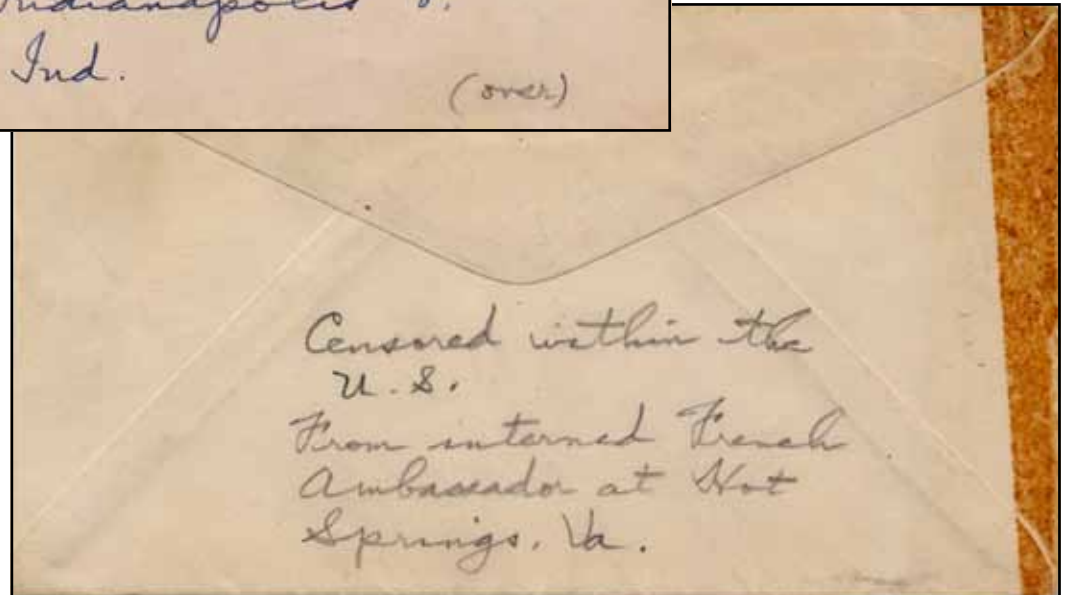 Indianapolis
Ind.
(over)
Censored within the
U.S.
From interned French
Ambassador at Hot
Springs, Va.